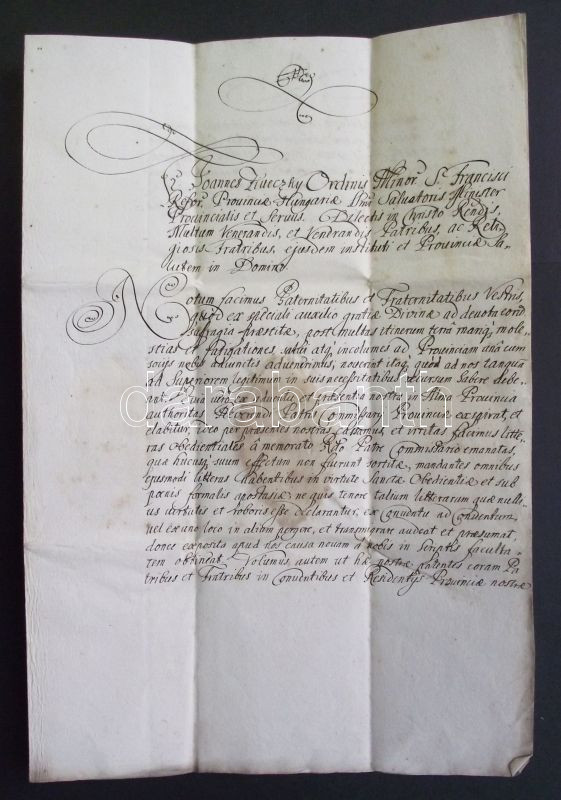 Joannes Ordinis Minor. S. Francisci
Refor. Provinciæ Hungariæ Salvatoris Minister
Provincialis et Servus. Dilectis in Christo
Multum Venerandis, et Venerandis Patribus, ac Reli
giosis Fratribus, ejusdem instituti et Provinciæ Sa
lutem in Domino
Notum facimus Paternitatibus et Fraternitatibus Vestris,
quod ex speciali auxilio gratiæ Divinæ ad devota
suffragia præstita, post multas itinerum mole
stias et fatigationes salvi atq incolumes ad Provinciam cum
socijs nobis adjunctis advenerimus, noverint itaq quod ad nos tanquã
ad Superiorem legitimum in suis necessitatibus recursum habere debe
ant. vero ex adventu et præsentia nostra in Alma Provincia
authoritas Reverendi Patris Commissarij Provinciæ expirat et
elabitur, per præsentes nostras cassamus, et irritas facimus litte
ras obedientiales â memorato Patre Commissario emanatas,
quæ hucusq suum effectum non sortitæ, mandantes omnibus
ejusmodi litteras habentibus in virtute Sanctæ Obedientiæ et sub
pœnis formalis apostasiæ ne quis tenore talium litterarum quæ nulli
us virtutis et roboris esse declarantur, ex Conventu ad Conventum,
vel ex uno loco in alium pergere, et transmigrare audeat et præsumat,
donec exposita apud nos causa novam â nobis in Scriptis faculta
tem obtineat. Volumus, autem ut hæ nostræ patentes coram Pa
tribus et Fratribus in Conventibus et Residentijs Provinciæ nostræ
darabanth